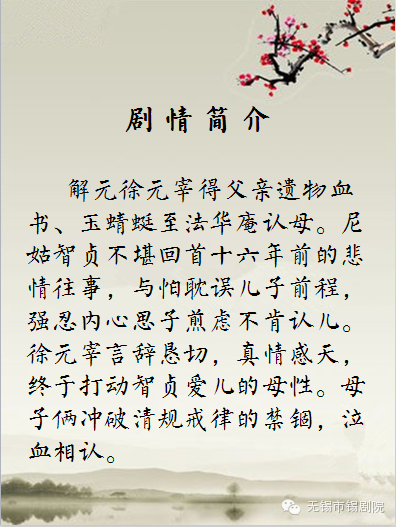 剧情简介
解元徐元宰得父亲遗物血
书、玉蜻蜓至法华庵认母。尼
姑智贞不堪回首十六年前的悲
情往事，与怕耽误儿子前程，
强忍内心思子煎虑不肯认儿。
徐元宰言辞恳切，真情感天，
终于打动智贞爱儿的母性。母
子俩冲破清规戒律的禁锢，泣
血相认。
无锡市锡剧院